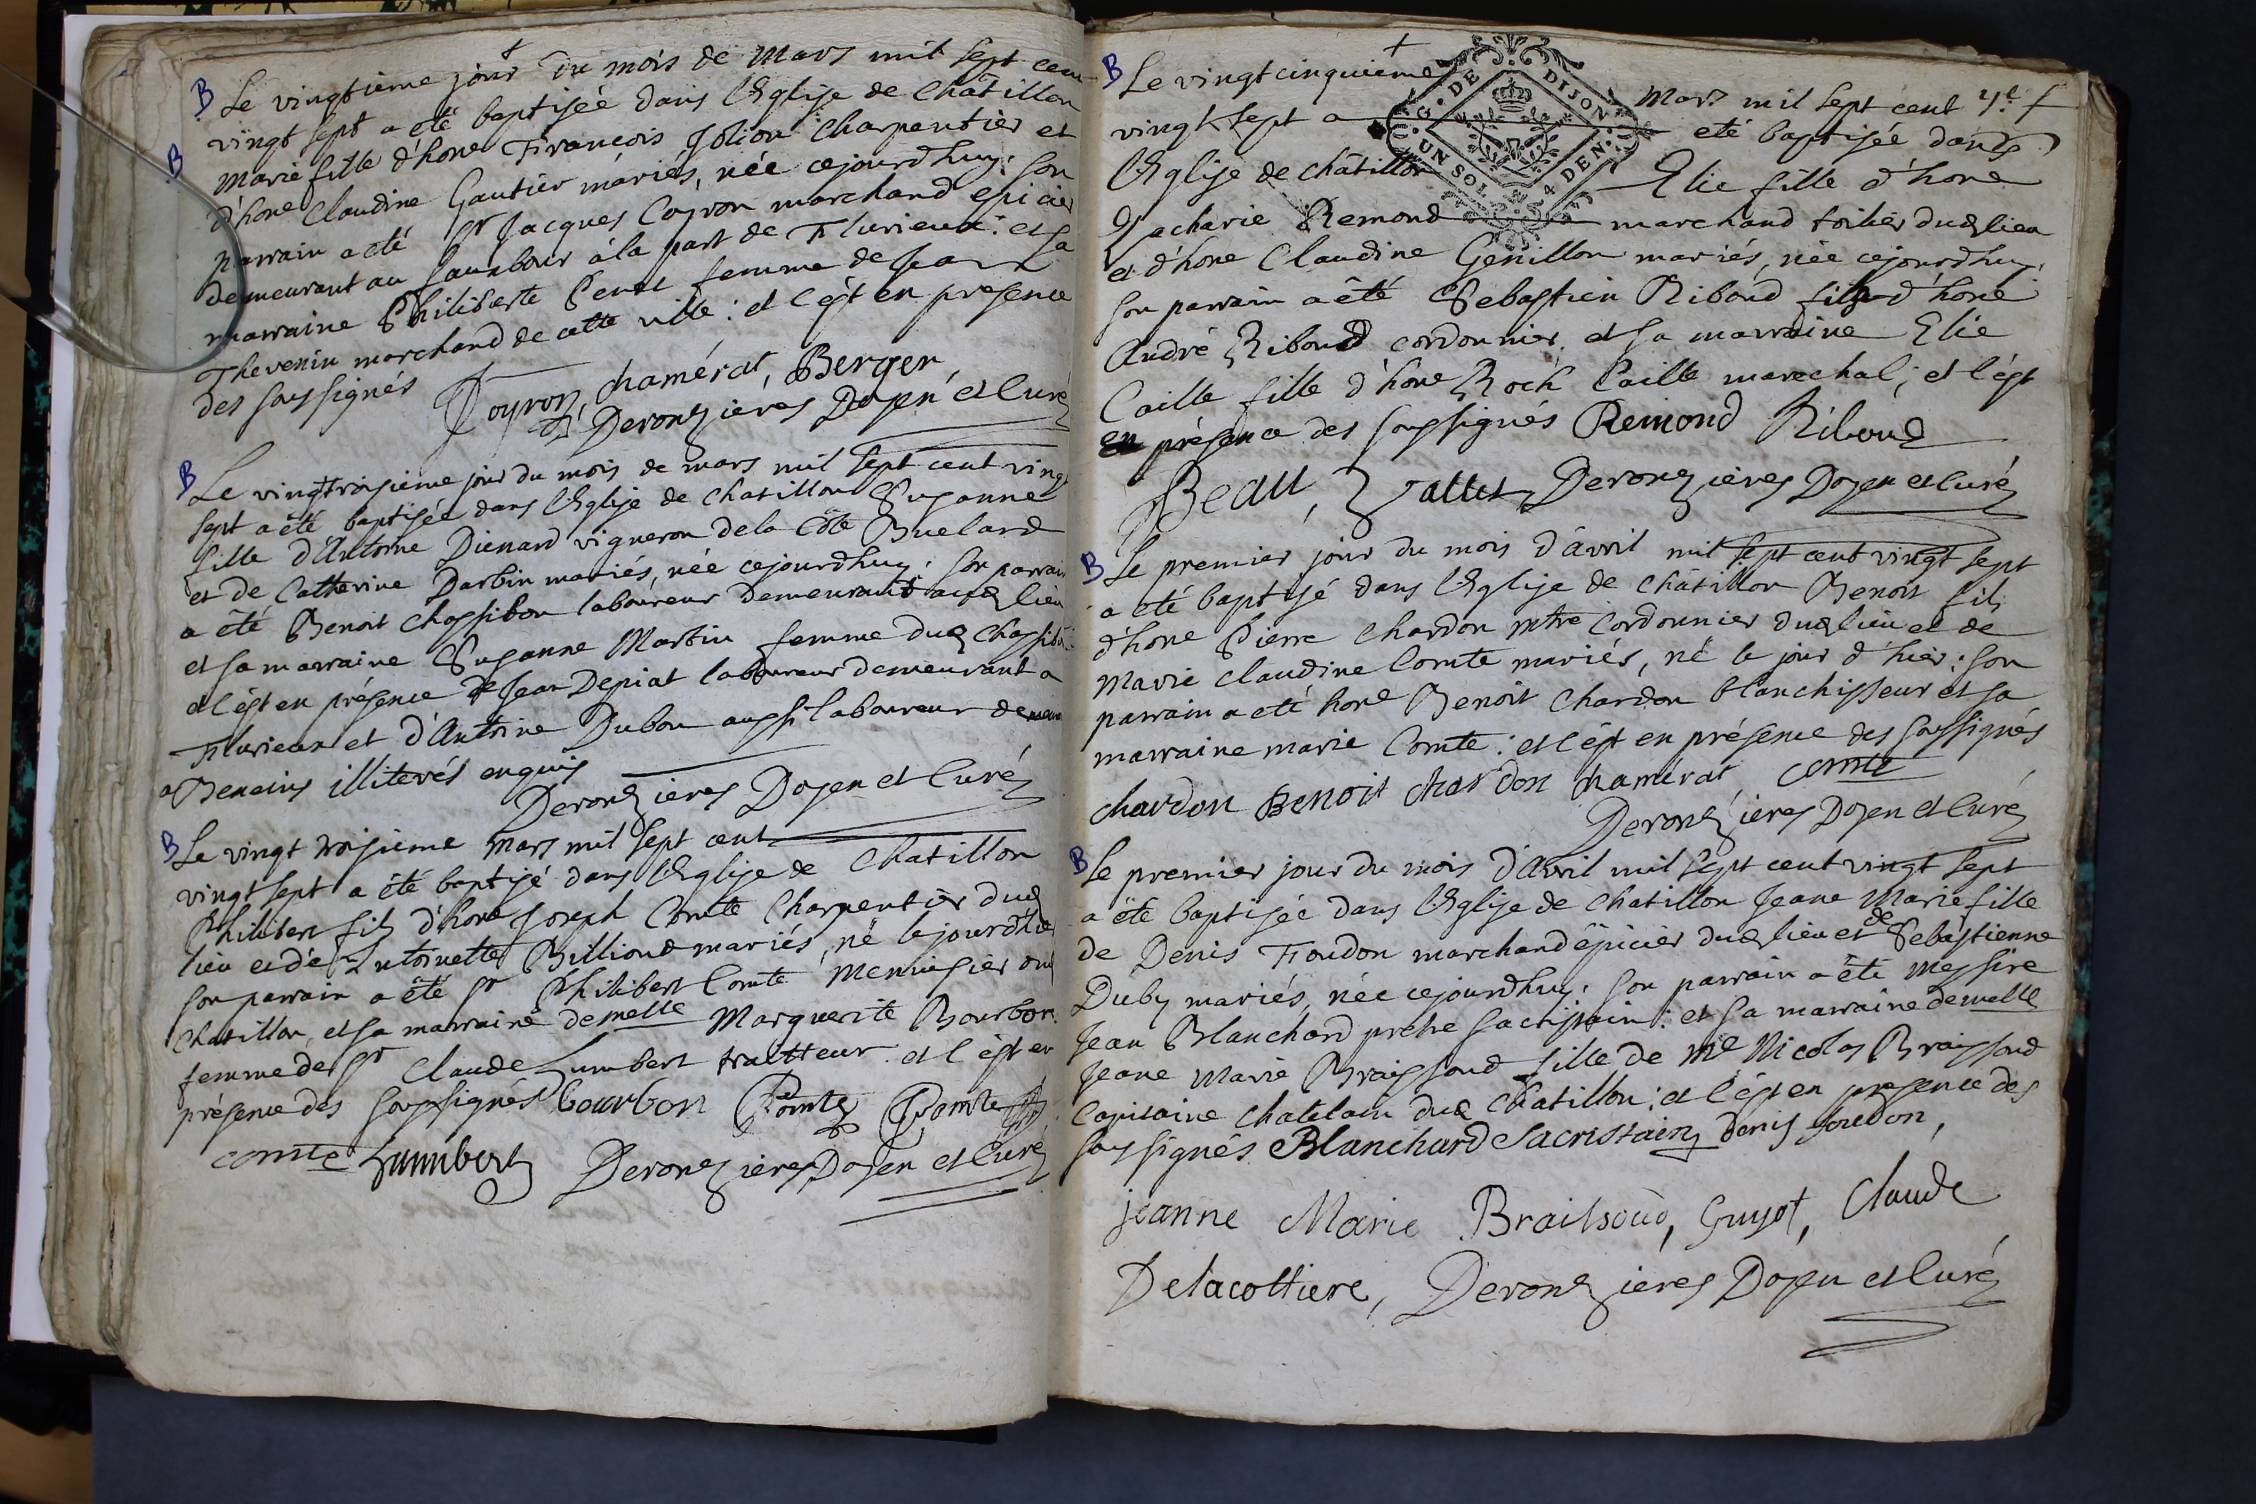 +
B Le vingtieme jour du mois de Mars mil sept cent
vingt sept a eté baptisée dans l'Eglise de Châtillon
B Marie fille d'hone François Jolion charpentier et
d'hone Claudine Gautier mariés, née cejourdhuy: son
parrain a eté Sr Jacques Coyron marchand epicier
demeurant au faux bour à la part de Flurieux: et sa
marraine Philiberte femme de Jean
Thevenin marchand de cette ville: et c'est en presence
des soussignés
Coyron, chamérat, Berger,
Deronzieres Doyen et Curé
B Le vingtroisieme jour du mois de mars mil sept cent vingt
sept a été baptisée dans l'Eglise de Chatillon Susanne
fille d'Antoine Dienard vigneron de la Côte Buelard
et de Catherine Darbin mariés, née cejourdhuy: son parrain
a été Benoit Chossibon laboureur demeurant audt lieu
et sa marraine Susanne Martin femme dudt Chossibon
et c'est en présence de Jean Depiat laboureur demeurant a
Flurieux et d'Antoine Dubon aussi laboureur demeurant
a Beneins illiterés enquis
Deronzieres Doyen et Curé
B Le vingt troisieme Mars mil sept cent
vingt sept a été baptisé dans l'Eglise de Chatillon
Philibert fils d'hone Joseph Comte Charpentier dudt
lieu et de Antoinette Billioud mariés, né le jourd'hier
son parrain a été Sr Philibert Comte Menuisier dud
Chatillon, et sa marraine demelle Marguerite Bourbon
femme de Sr Claude Humbert traitteur. et c'est en
présence des soussignés bourbon Comte Comte
comte humbert Deronzieres Doyen et Curé
+
G. DE DIJON
UN SOL 4 DEN.
B Le vingtcinquieme Mars mil sept cent
vingt sept a eté baptisée dans
l'Eglise de châtillon Elie fille d'hone
Zacharie Remond marchand toilier dudt lieu
et d'hone Claudine Genillon mariés, née cejourdhuy.
son parrain a été Sebastien Riboud fils d'hone
André Riboud cordonnier, et sa marraine Elie
Caille fille d'hone Roch Caille marechal; et c'est
en présence des soussignés Remond Riboud
Beau, Vallet, Deronzieres Doyen et Curé
B Le premier jour du mois d'avril mil sept cent vingt sept
a eté baptisé dans l'Eglise de châtillon Benoit fils
d'hone Pierre Chardon mtre Cordonnier dudt lieu et de
Marie Claudine Comte mariés, né le jour d'hier: son
parrain a eté hone Benoit Chardon blanchisseur et sa
marraine marie Comte: et c'est en présence des soussignés
chardon Benoit chardon chamérat, comte
Deronzieres Doyen et Curé
B Le premier jour du mois d'Avril mil sept cent vingt sept
a été baptisée dans l'Eglise de Chatillon Jeane Marie fille
de Denis Foudon marchand épicier dudt lieu et de Sebastienne
Duby mariés, née cejourdhuy. son parrain a été Messire
Jean Blanchard pretre sacristain: et sa marraine demelle
Jeane Marie Braissoud fille de Me Nicolas Braissoud
Capitaine chatelain dudt Chatillon: et c'est en presence des
soussignés Blanchard Sacristain, denis foudon,
jeanne Marie Braissoud, Guyot, Claude
Delacottiere, Deronzieres Doyen et Curé